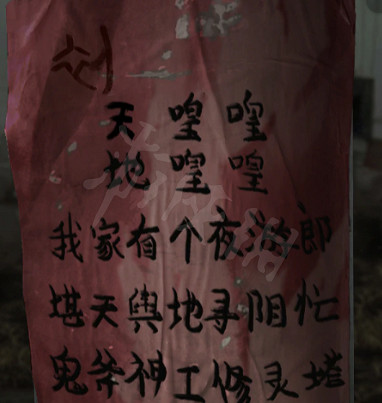 天 喤 喤
地 喤 喤
我家有个夜游郎
堪天舆地寻阳忙
鬼斧神工修灵